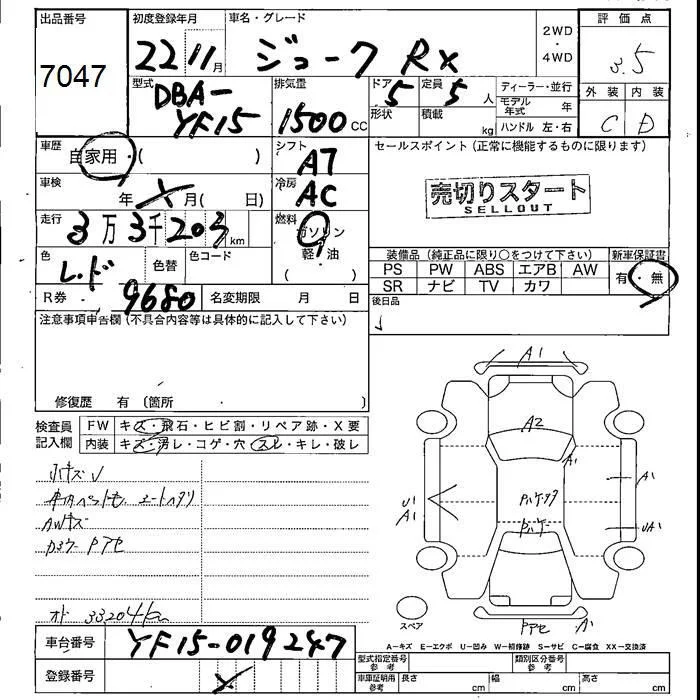 出品番号
7047
初度登録年月
22 11月
車名・グレード
ジューク RX
2WD
・
4WD
評価点
3.5
外装 内装
C D
型式
DBA-
YF15
排気量
1500 CC
ドア
5
形状
定員
5 人
積載
kg
ディーラー・並行
モデル年式 年
ハンドル 左・右
車歴
自家用・( )
シフト
AT
セールスポイント(正常に機能するものに限ります)
売切りスタート
SELLOUT
車検
年 X 月( 日)
冷房
AC
走行
3万3千203 km
燃料
ガソリン
・
軽・油
( )
色
レッド
色替
色コード
装備品(純正品に限り○をつけて下さい)
新車保証書
PS PW ABS エアB AW
SR ナビ TV カワ
有・無
R券
9680
名変期限 月 日
後日品
注意事項申告欄(不具合内容等は具体的に記入して下さい)
修復歴 有(箇所 )
検査員
記入欄
FW キズ・飛石・ヒビ割・リペア跡・X要
内装 キズ・汚レ・コゲ・穴・スレ・キレ・破レ
小キズ
AWキズ
オド 33204km
A1
A2
A1
A1
U1
A1
UA1
A1
スペア
A-キズ E-エクボ U-凹み W-補修跡 S-サビ C-腐食 XX-交換済
車台番号
YF15-019247
登録番号
X
型式指定番号
参考
類別区分番号
参考
車庫証明用
参考
長さ cm
幅 cm
高さ cm